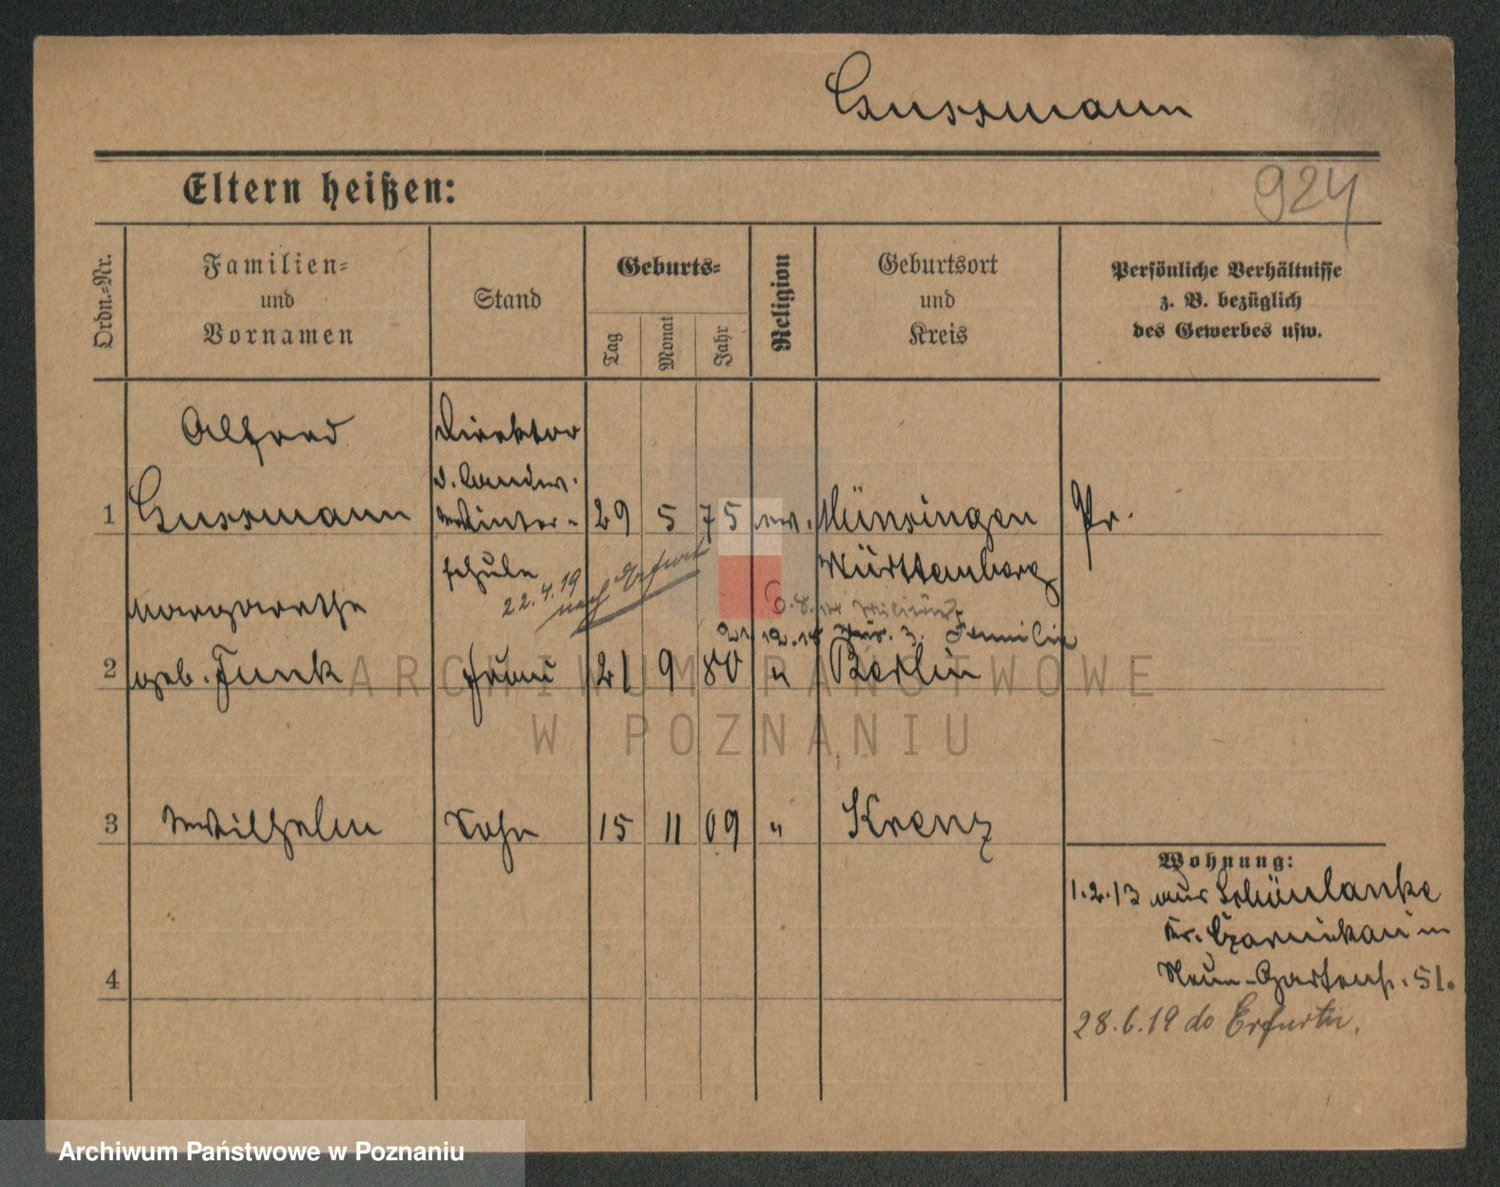 Gussmann
Eltern heißen:
924
Ordn.-Nr.
Familien-
und
Vornamen
Stand
Geburts-
Tag
Monat
Jahr
Religion
Geburtsort
und
Kreis
Persönliche Verhältnisse
z. B. bezüglich
des Gewerbes usw.
Alfred
Direktor
d. landw.
1 Gussmann Winter- 29 5 75 ev. Münsingen Pr.
schule Württemberg
22.4.19
nach Erfurt
Margarethe
6.8. Militär
21.12.18 zur. z. Familie
2 geb. Funk Frau 21 9 80 " Berlin
ARCHIWUM PAŃSTWOWE
W POZNANIU
3 Wilhelm Sohn 15 11 09 " Krenz
Wohnung:
1.2.13 aus Schönlanke
Kr. Czarnikau in
Neue-Gartenstr. 51.
4
28.6.19 do Erfurtu.
Archiwum Państwowe w Poznaniu